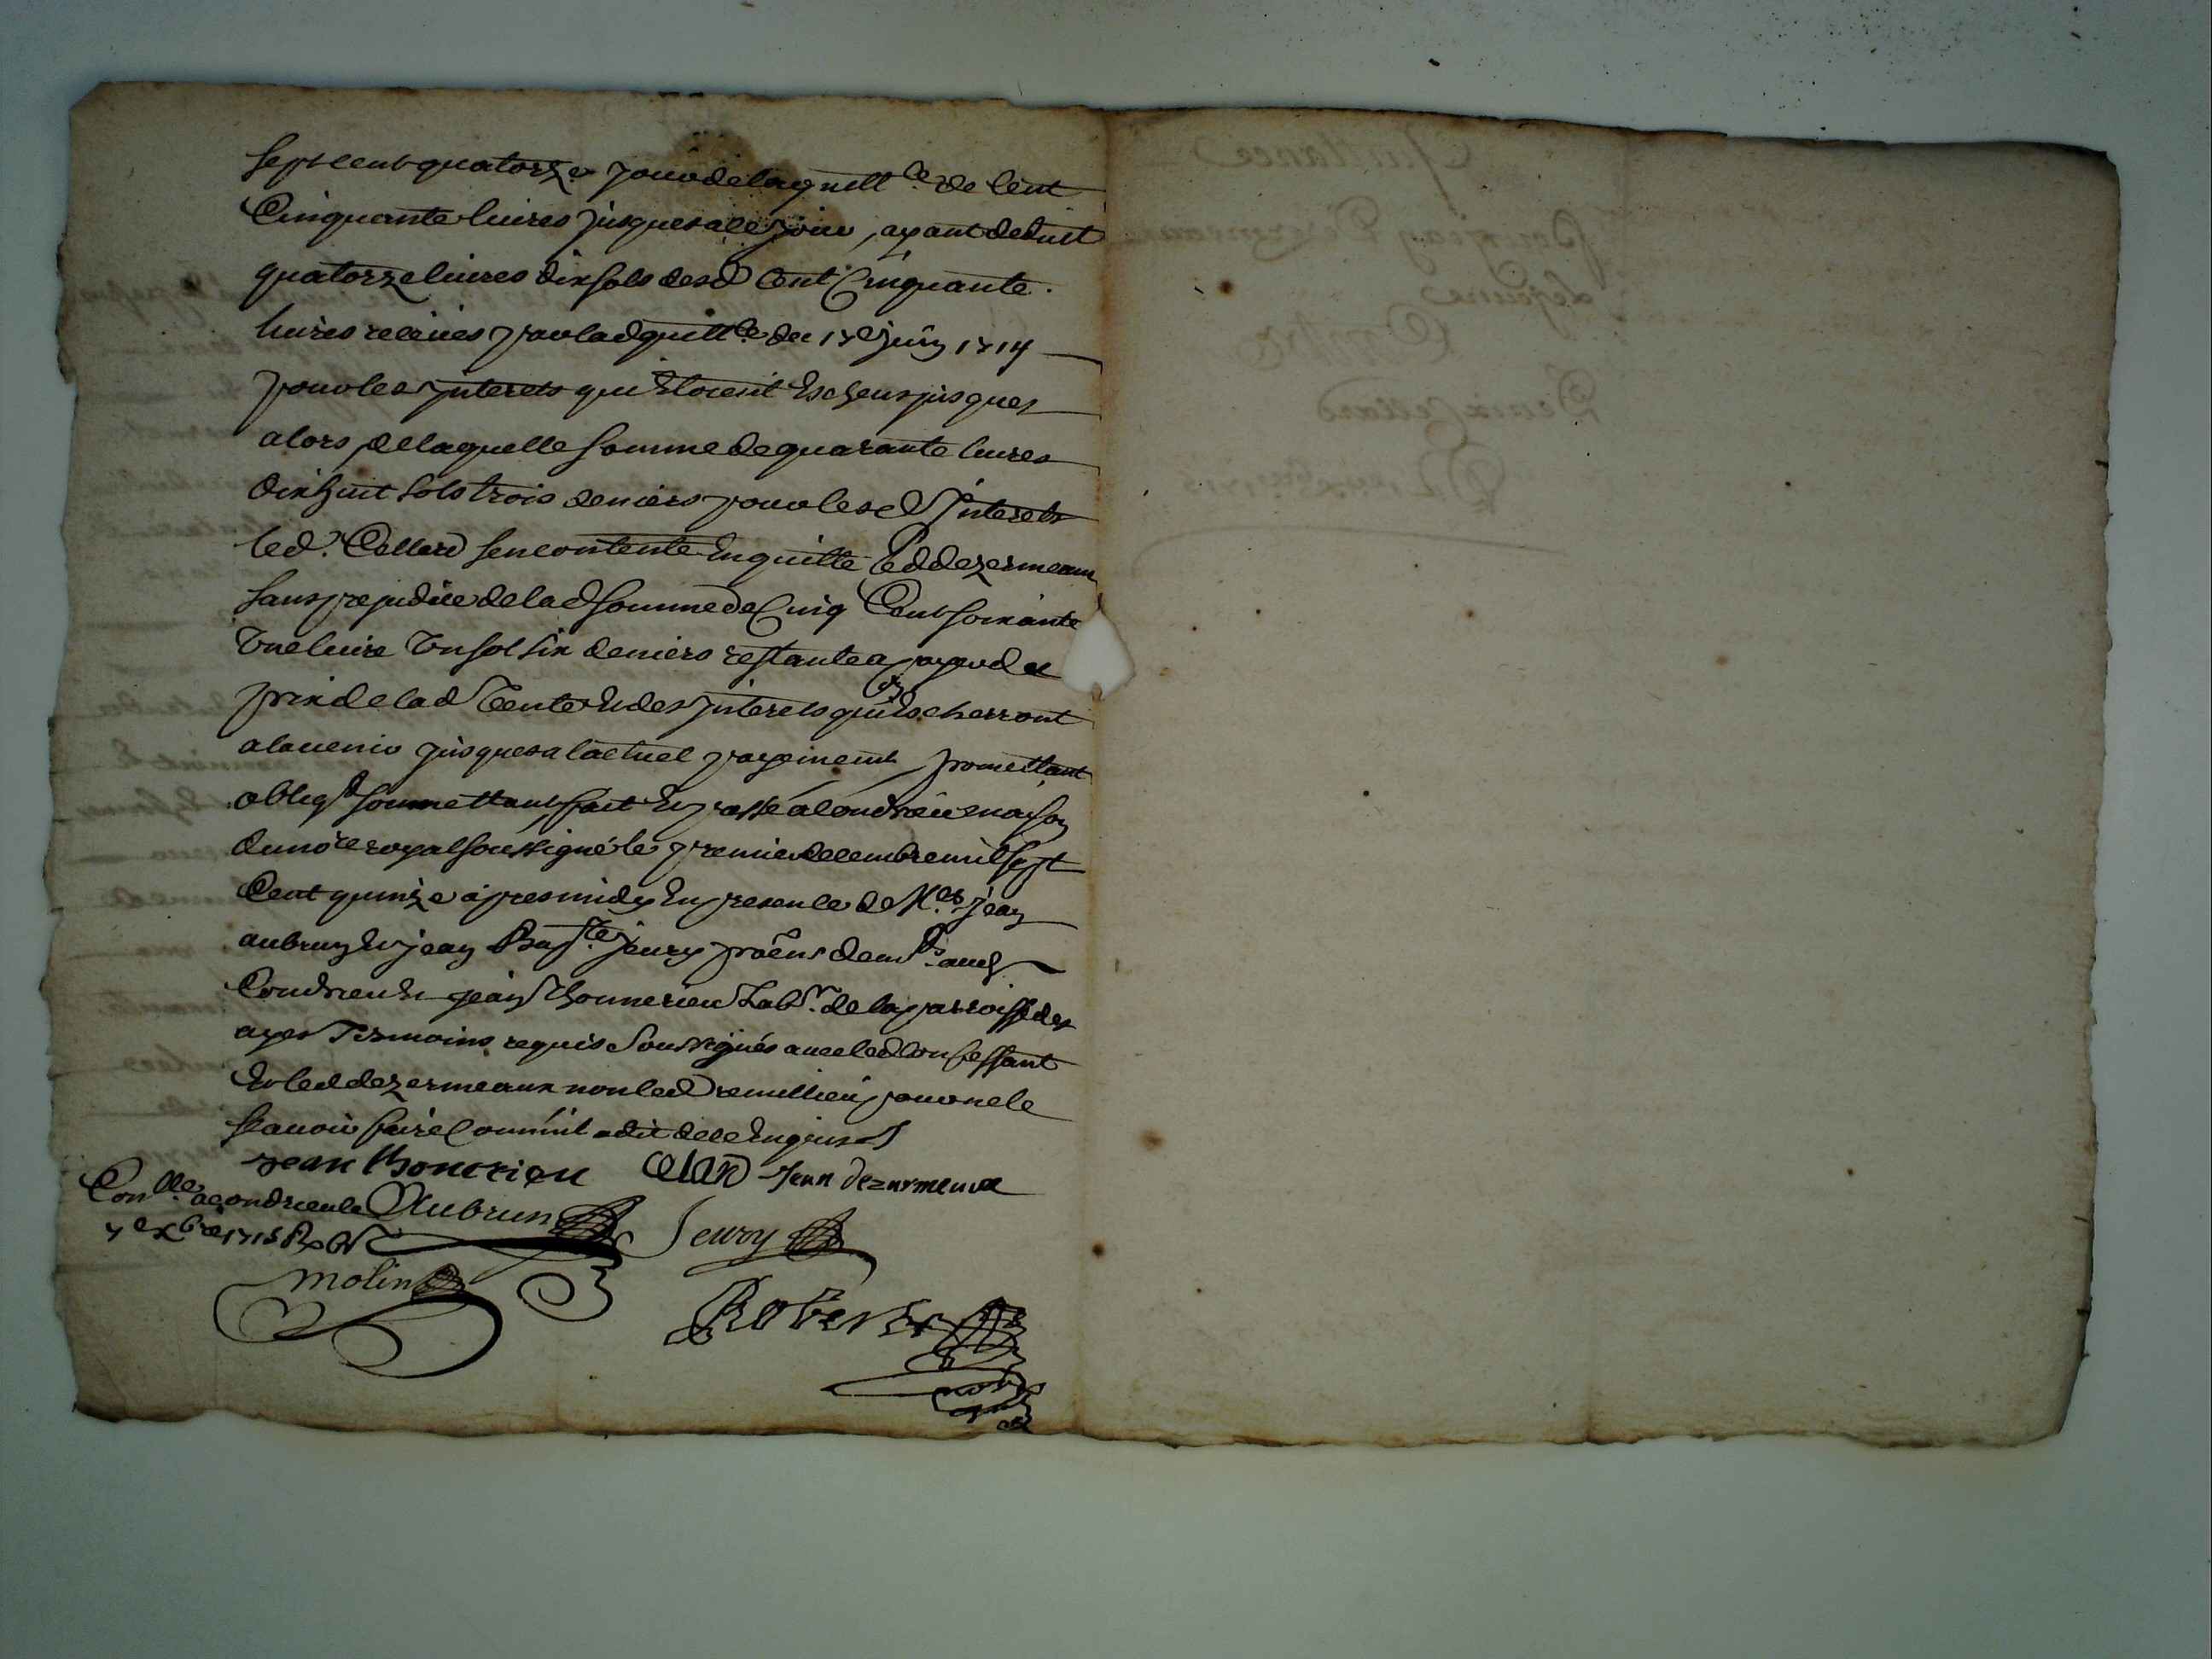 sept cent quatorze jour de la quittce de Cent
Cinquante livres jusques a ce jour, ayant deduit
quatorze livres dix sols desd Cent Cinquante
livres receues par lad quittce du 17e juin 1714
pour les interets qui Etoient Escheus jusques
alors, de laquelle somme de quarante livres
dix huit sols trois deniers pour lesd Interets
led. Cellard sen contente En quitte led dezermeaux
sans prejudice de lad somme de Cinq Cent soixante
Une livre Un sol six deniers restante a payer du
prix de lad Vente Et des interets qui Escherront
alavenir jusques a lactuel payement, promettant
obligt soumettant, fait Et passé a Condrieu maison
du nore royal soussigné le premier decembre mil sept
Cent quinze apres midy En presence de Mes jean
aubrun Et jean Bapte jeury praens demts aud
Condrieu Et jean Thonnerieu Labr. de la parroisse des
ayes Tesmoins requis Soussignés avec led Confessant
Et led dezermeaux non led remillieu pour ne le
scavoir faire Comm'il a dit de ce Enquis
jean thonerieu Celard Jean dezarmeaux
Conllé a condrieu le Aubrun
7e xbre 1715 R
Jeury
molin
Robert
nore
Quittance
pour jean Dezermeaux
Cellard